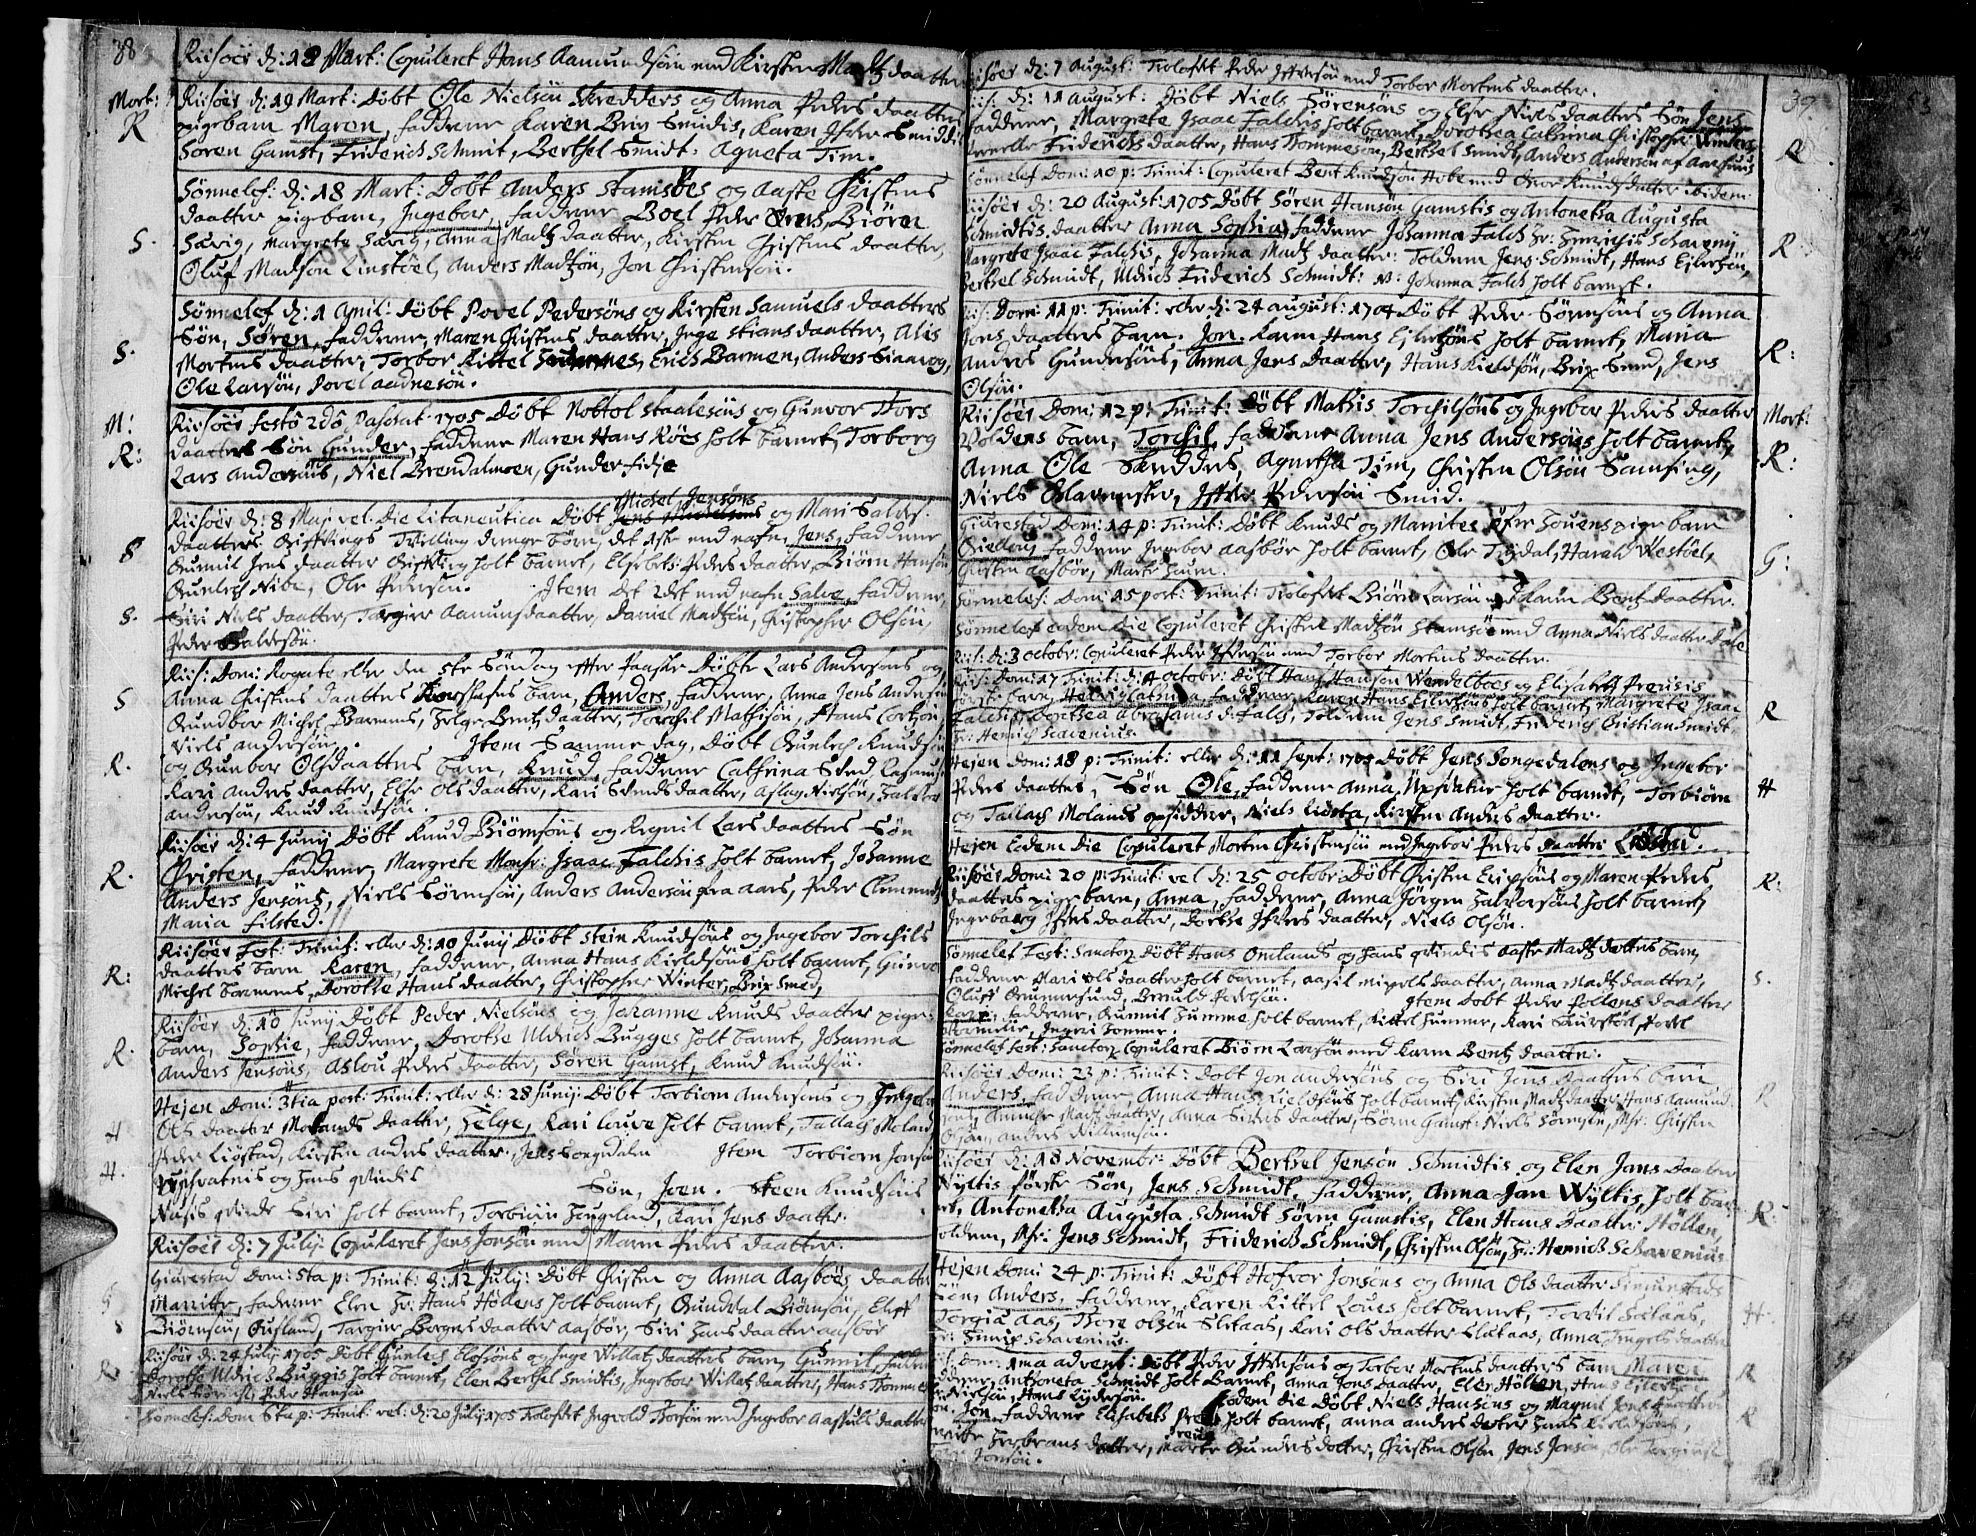 38
Riisøer d: 18 Mart: Copuleret Hans Aamundsøn med Kirsten Madtz daatter
Mort: Riisøer d: 19 Mart: Døbt Ole Nielsøn Skredders og Anna Peders daatters
R pigebarn Maren, faddrene Karen Brix Smidis, Karen Ifver Smidd:
Søren Gamst, Friderich Schmit, Berthel Smidt: Agneta Tim.
Sønnelef: d: 18 Mart: Døbt Anders Stamsøes og Aaste Christens
daatter pigebarn, Ingebor, faddrene Boel Peder Ørens, Biørn
S. Savig, Margrete Savig, Anna Madtz daatter, Kirsten Christens daatter,
Oluf Madsøn Linstøel, Anders Madtzøn, Jon Christensøn.
Sønnelef d: 1 April: Døbt Povel Pedersøns og Kirsten Samuels daatters
Søn, Søren, faddrene, Maren Christens daatter, Inge Stians daatter, Alis
S. Mortens daatter, Torbor Kittel, Erich Barmen, Anders Siaavog,
Ole Larsøn, Povel Aadnesøn.
M: Riisøer Festo 2do Paschat: 1705 Døbt Nottol Staalesøns og Gunvor Tors
R: daatters Søn Gunder, faddrene Maren Hans Røes holt barnet, Torborg
Lars Andersøns, Niel Brendalmoen, Gunder Fidje
Michel Jensøns
Riisøer d: 8 Maj vel. Die Litaneutica Døbt og Mari Salves.
daatters Tvilling drenge børn, det 1ste med nafn, Jens, faddrene
S Gunnil Jens daatter holt barnet, Elsebeth Peders daatter, Biørn Hansøn
Gunlech Nibe, Ole Pedersøn. Item det 2det med nafn Salve, faddrene,
S. Siri Niels daatter, Targier Aamunsdaatter, Daniel Madtzøn, Christopher Olsøn,
Peder Salvesøn.
Riis: Dom: Rogate eller den 5te Søndag effter Paaske Døbt Lars Andersøns og
S Anna Christens daatters barn, Anders, faddrene, Anna Jens Andersøns
Gundbor Michel Barmens, Helge Bentz daatter, Torchil Mathisøn, Hans Cortzøn,
Niels Andersøn. Item Samme dag, Døbt Gunlech Knudsøn
R. og Gunbor Olsdaatters barn, Knud, faddrene Cathrina Sved, Rasmus
Kari Anders daatter, Else Ols daatter, Kari Svends daatter, Aslag Nielsøn, Halvor
Andersøn, Knud Knudsøn.
Riisøer d: 4 Junij Døbt Knud Biørnsøns og Regnil Lars daatters Søn
R. Christen, faddrene, Margrete Monsr: Isaac Falchis holt barnet, Johanne
Anders Jensøns, Niels Sørensøn, Anders Andersøn fra Aars, Peder Clemmends
Maria Filsted.
Riisøer Fest: Trinit: eller d: 10 Junij Døbt Stein Knudsøns og Ingebor Torchils
R: daatters barn Karen, faddrene, Anna Hans Kieldsøns holt barnet, Gunvor
Michel Barmens, Dorothe Hans daatter, Christopher Winter, Brix Smed,
Riisøer d: 10 Junij Døbt Peder Nielsøns og Johanne Knuds daatter pige
R. barn, Sophie, faddrene, Dorothe Uldrich Bugges holt barnet, Johanna
Anders Jensøns, Aslou Peders daatter, Søren Gamst, Knud Knudsøn.
Hejen Dom: 3tia post. Trinit: eller d: 28 Junij Døbt Torbiørn Andersøns og Ingebor
H Ols daatter Molands daatter, Helge, Kari Louve holt barnet, Tallach Moland
Peder Liøstad, Kirsten Anders daatter, Jens Songdalen Item Torbiørn Jonsøn
H. og hans Qvindis Søn, Joen. Steen Knudsøns
Qvinde Siri holt barnet, Torbiørn Houglud, Kari Jens daatter.
Riisøer d: 7 Julij: Copuleret Jens Jonsøn med Maren Peders daatter.
Giærestad Dom: 5ta p: Trinit: d: 12 Julij: Døbt Christen og Anna Aasbøes daatter
G Marrite, faddrene Elen Hr: Hans Høllens holt barnet, Gundval Biørnsøn, Eleff
Biørnsøn, Gusland, Targier Borgers daatter Aasbøe, Siri Hans daatter Aasbøe
Riisøer d: 24 Julij 1705 Døbt Gunlech Elofsøns og Inge Willatz daatters barn, Gunnil, faddrene
R Dorothe Uldrich Buggis holt barnet, Elen Berthel Smidtis, Ingebor Willatz daatter, Hans Tommesøn
Niels, Peder Hansøn
Sønnelef: Dom 6ta p: Trinit: vel: d: 20 Julij 1705 Trolofvet Ingvold Torsøn med Ingebor Aasuls daatter
39
Riisøer d: 7 August: Trolofvet Peder Iffversøn med Torbor Mortens daatter.
Riis: d: 11 August: Døbt Niels Sørensøns og Else Niels daatters Søn Jens
faddrene, Margrete Isaac Falchis holt barnet, Dorothea Cathrina Christopher Winters,
Pernelle Friderichs daatter, Hans Tommesøn, Berthel Smidt, Anders Andersøn af Aarhuus R
Sønnelef Dom: 10 p: Trinit: Copuleret Bent Knudsøn Hobe med Gvor Knudsdatter ibidem
Riisøer d: 20 August: 1705 Døbt Søren Hansøn Gamstis og Antonetha Augusta
Schmidtis daatter Anna Sophia, faddrene Johanna Falch Hr: Henrichis Schaveny R
Margrete Isaac Falchis, Johanna Madtz daatter: Tolderen Jens Schmidt, Hans Ejlertzøn,
Berthel Schmidt, Uldrich Friderich Schmidt: N: Johanna Falch holt barnet.
Riis: Dom: 11 p: Trinit: eller d: 24 August: 1704 Døbt Peder Sørensøns og Anna
Jons daatters barn. Jon. Karen Hans Ejlertzøns holt barnet, Maria R:
Anders Gundersøns, Anna Jens daatter, Hans Kieldsøn, Brix Smed, Jens
Olsøn.
Riisøer Dom: 12 p: Trinit: Døbt Mathis Torchilsøns og Ingebor Peders daatter Mort:
Voldens barn, Torchil, faddrene Anna Jens Andersøns holt barnet, R:
Anna Ole Skredders, Agnetha Tim, Christen Olsøn Samsing,
Niels Glarmester, Ifver Pedersøn Smid.
Giærestad Dom: 14 p: Trinit: Døbt Knuds og Marrites pige barn
Siedvy faddrene Ingebor Aasbøe holt barnet, Ole Tvejdal, Harald Vestøel, G:
Christen Aasbøe, Marte Haven.
Sønnelef: Dom: 15 post: Trinit: Trolofvet Biørn Larsøn med Karen Bentz daatter.
Sønnelef eodem die Copuleret Christen Madtzøn Stamsøe med Anna Niels daatter Dale
Riis: d: 3 Octobr: Copuleret Peder Iffversøn med Torbor Mortens daatter.
Riis: Dom: 17 Trinit: d: 4 Octobr: Døbt Hans Hansøn Wendelboes og Elisabeth Preusis
barn, faddrene Karen Hans Ejlertsøns holt barnet, Margrete Isaac
Falchis, Dorethea Abrahams d: Falch, Tolderen Jens Smidt, Friderich Christian Smidt, R
Hr: Henrich Scavenius.
Hejen Dom: 18 p: Trinit: eller d: 11 Sept: 1705 Døbt Jens Songedalens og Ingebor
Peders daatters Søn Ole, faddrene Anna holt barndt, Torbiørn H
og Tallach Molands opsiddere, Niels Liøsta, Kirsten Anders daatter.
Hejen Eodem die Copuleret Morten Christensøn med Ingebor Peders daatter Liøstad.
Riisøer Dom: 20 p: Trinit: vel d: 25 Octobr: Døbt Christen Erichsøns og Maren Peders
daatters pige barn, Anna, faddrene, Anna Jørgen Halvorsøns holt barnet, R:
Ingeborg Ifvers daatter, Dorthe Ifvers daatter, Niels Olsøn.
Sønnelef Fest: Sanctor: Døbt Hans Omlands og hans Qvindis Aaste Madtz datters barn,
faddrene Mari Ols daatter holt barnet, Aasil Michels daatter, Anna Madtz daatter, S.
Oluff, Berulf Pedersøn. Item Døbt Peder Pollens daatter
Kari, faddrene, Gunnil Humme holt barnet, Kittel Hummen, Kari Saurstøel, Povel
Barmen, Ingeri Hommen.
Sønnelef Fest: Sanctor: Copuleret Biørn Larsøn med Karen Bentz daatter.
Riisøer Dom: 23 p: Trinit: Døbt Jon Andersøns og Siri Jens daatters barn
Anders, faddrene, Anna Hans Kieldsøns holt barnet, Kirsten Madtz daatter, Hans Aamund: R
søns, Anniche Madtz daatter, Anna Sivers daatter, Søren Gamst, Niels Sørensøn, Mr: Christen
Olsøn, Anders Villumsøn.
Riisøer d: 18 Novembr: Døbt Berthel Jensøn Schmidtis og Elen Jans daatter
Wyltis første Søn, Jens Schmidt, faddrene, Anna Jan Wyltis, holt bar-
net, Antonetha Augusta Schmidt Søren Gamstis, Elen Hans daatter Høllen, R:
Tolderen, Mr: Jens Schmidt, Friderich Schmidt, Christen Olsøn, Hr: Henrich Schavenius
Hejen Dom: 24 p: Trinit: Døbt Hofvor Jonsøns og Anna Ols daatter
Søn, Anders, faddrene, Karen Kittel Loves holt barnet, Torvil H.
Torgia Aas, Tore Olsøn Sletaas, Kari Ols daatter Sletaas, Anna Ingels daatter
Hr: Henrich Schavenius.
Riis: Dom: 1ma Advent: Døbt Peder Iffversøns og Torbor Mortens daatters barn Maren
faddrene, Antoneta Schmidt holt barnet, Anna Jons daatter, Elen Høllen, Hans Ejlertz: R
Nielsøn, Hans Lydersøn. Eodem die Døbt Niels Hansøns og Magnil Jons daatters
Søn. Jon, faddrene Elisabeth Preus holt barnet, Anna Anders datter Hans Kieldsøns, R
Herbrans datter, Marte Gunders dotter, Christen Olsøn, Jens Jonsøn, Ole
Jonsøn.